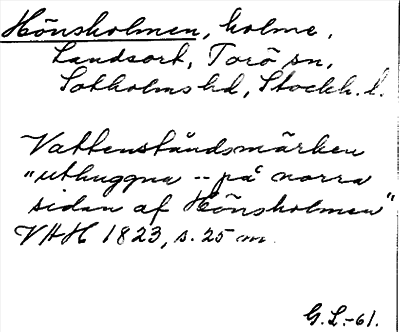 Hönsholmen, holme,
Landsort, Torö sn,
Sotholms hd, Stockh. l.
Vattenståndsmärken
"uthuggna -- på norra
sidan af Hönsholmen"
VAH 1823, s. 25 m
G. L. -61.